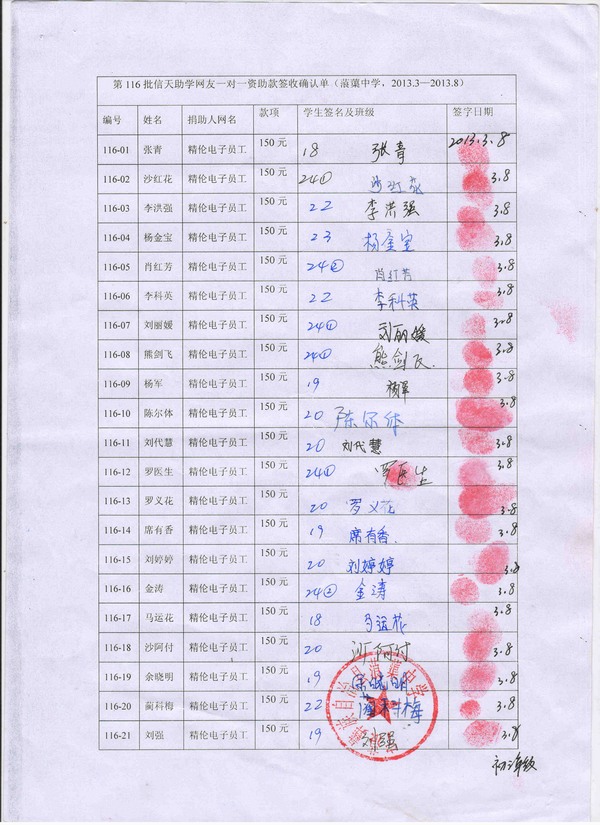 第 116 批信天助学网友一对一资助款签收确认单（蒗蕖中学，2013.3—2013.8）
编号 姓名 捐助人网名 款项 学生签名及班级 签字日期
116-01 张青 精伦电子员工 150 元 18 张青 2013.3.8
116-02 沙红花 精伦电子员工 150 元 24① 沙红花 3.8
116-03 李洪强 精伦电子员工 150 元 22 李洪强 3.8
116-04 杨金宝 精伦电子员工 150 元 23 杨金宝 3.8
116-05 肖红芳 精伦电子员工 150 元 24② 肖红芳 3.8
116-06 李科英 精伦电子员工 150 元 22 李科英 3.8
116-07 刘丽媛 精伦电子员工 150 元 24① 刘丽媛 3.8
116-08 熊剑飞 精伦电子员工 150 元 24① 熊剑飞 3.8
116-09 杨军 精伦电子员工 150 元 19 杨军 3.8
116-10 陈尔体 精伦电子员工 150 元 20 陈尔体 3.8
116-11 刘代慧 精伦电子员工 150 元 20 刘代慧 3.8
116-12 罗医生 精伦电子员工 150 元 24① 罗医生 3.8
116-13 罗义花 精伦电子员工 150 元 20 罗义花 3.8
116-14 席有香 精伦电子员工 150 元 19 席有香 3.8
116-15 刘婷婷 精伦电子员工 150 元 20 刘婷婷 3.8
116-16 金涛 精伦电子员工 150 元 24② 金涛 3.8
116-17 马运花 精伦电子员工 150 元 18 马运花 3.8
116-18 沙阿付 精伦电子员工 150 元 20 沙阿付 3.8
116-19 余晓明 精伦电子员工 150 元 19 余晓明 3.8
116-20 蔺科梅 精伦电子员工 150 元 22 科梅 3.8
116-21 刘强 精伦电子员工 150 元 19 刘强 3.8